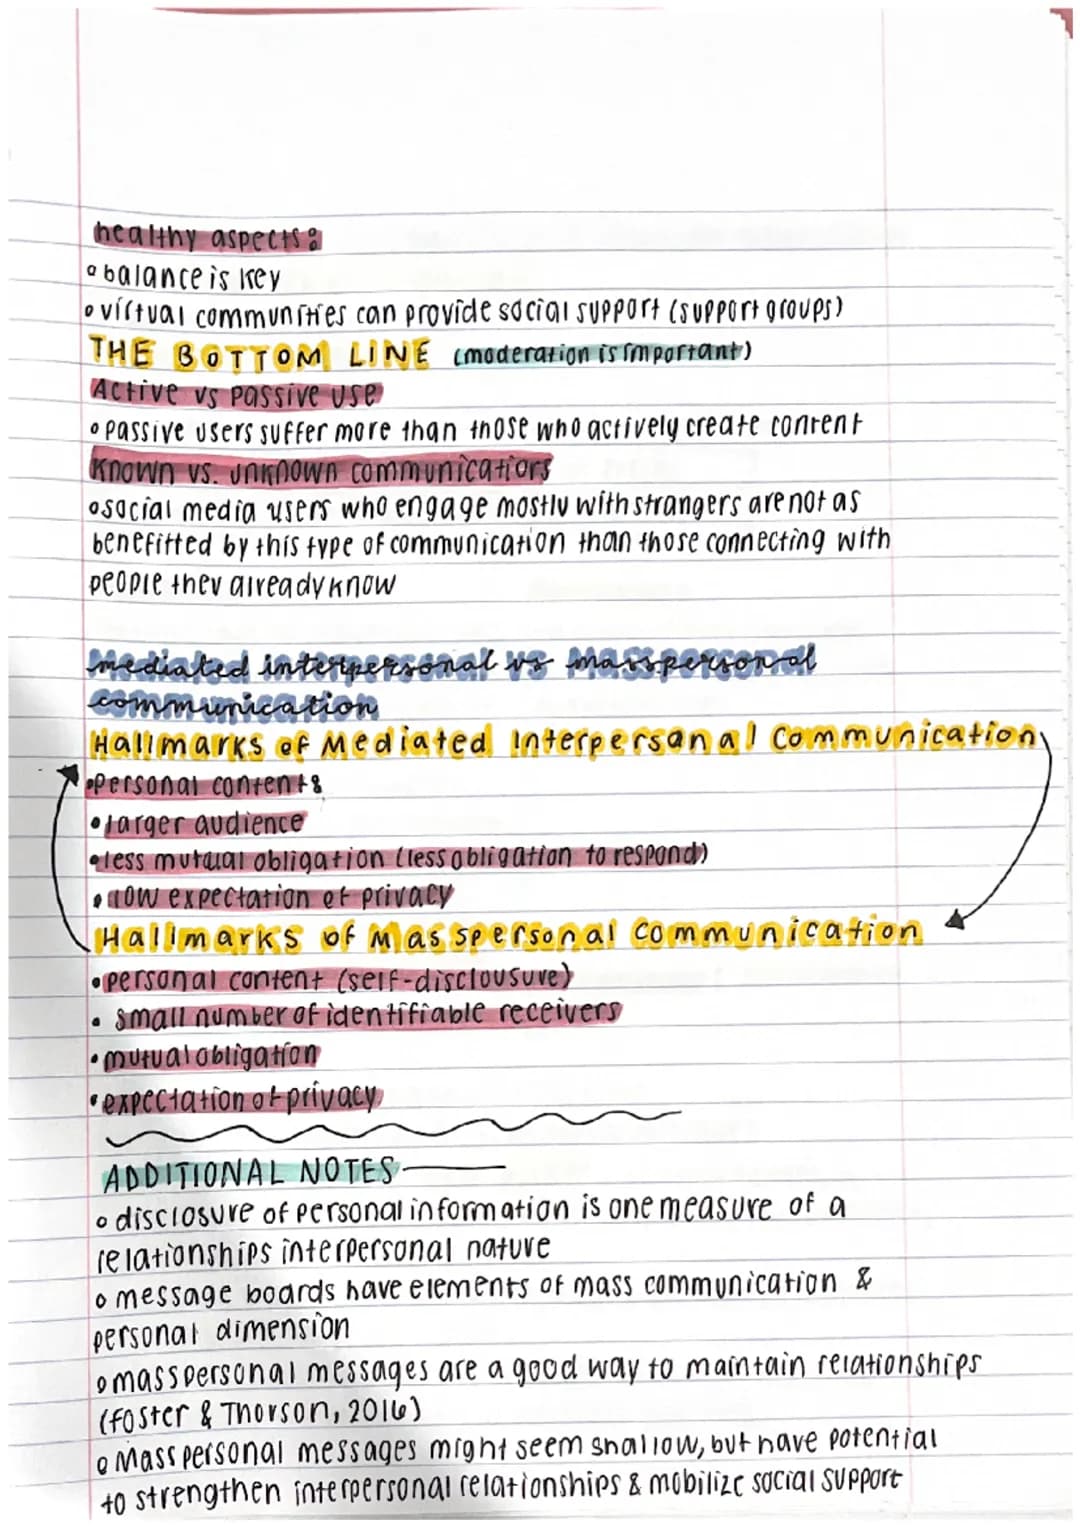 healthy aspects:
balance is key
virtual communities can provide social support (support groups)
THE BOTTOM LINE (moderation is important)
Active vs passive use
passive users suffer more than those who actively create content
Known vs. unknown communicatiors
social media users who engage mostly with strangers are not as
benefitted by this type of communication than those connecting with
people they already know
mediated interpersonal vs masspersonal
communication
Hallmarks of Mediated Interpersonal Communication
personal content:
larger audience
less mutual obligation (less obligation to respond)
low expectation of privacy
Hallmarks of Masspersonal Communication
personal content (self-disclousuve)
small number of identifiable receivers
mutual obligation
expectation of privacy
ADDITIONAL NOTES
disclosure of personal information is one measure of a
relationships interpersonal nature
message boards have elements of mass communication &
personal dimension
masspersonal messages are a good way to maintain relationships
(foster & Thorson, 2016)
Masspersonal messages might seem shallow, but have potential
to strengthen interpersonal relationships & mobilize social support